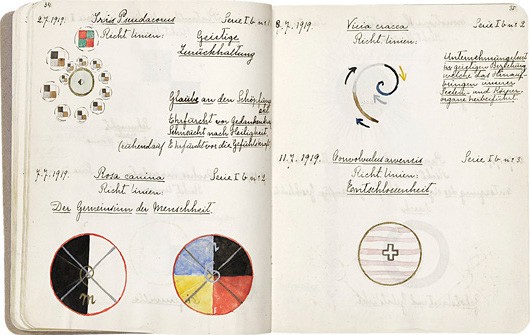 34.
2.7.1919. Iris Pseudacorus Serie I b nr 1.
Richt linien: Geistige
Zurückhaltung
Glaube an den Schöpfung
Ehrfurcht vor Gedanken
Sehnsucht nach Heiligkeit
Ehrfurcht vor der Gefühlskraft
7.7.1919. Rosa canina Serie I b nr 2.
Richt linien:
Der Gemeinsinn der Menschheit.
8.7.1919. Vicia cracca Serie I b nr 2
Richt linien:
Unternehmungslust
in geistiger Beziehung
welche das
innerer
Seelen- und Körper-
organe herbeiführt
11.7.1919. Convolvulus arvensis Serie I b nr 3.
Richt linien:
Entschlossenheit